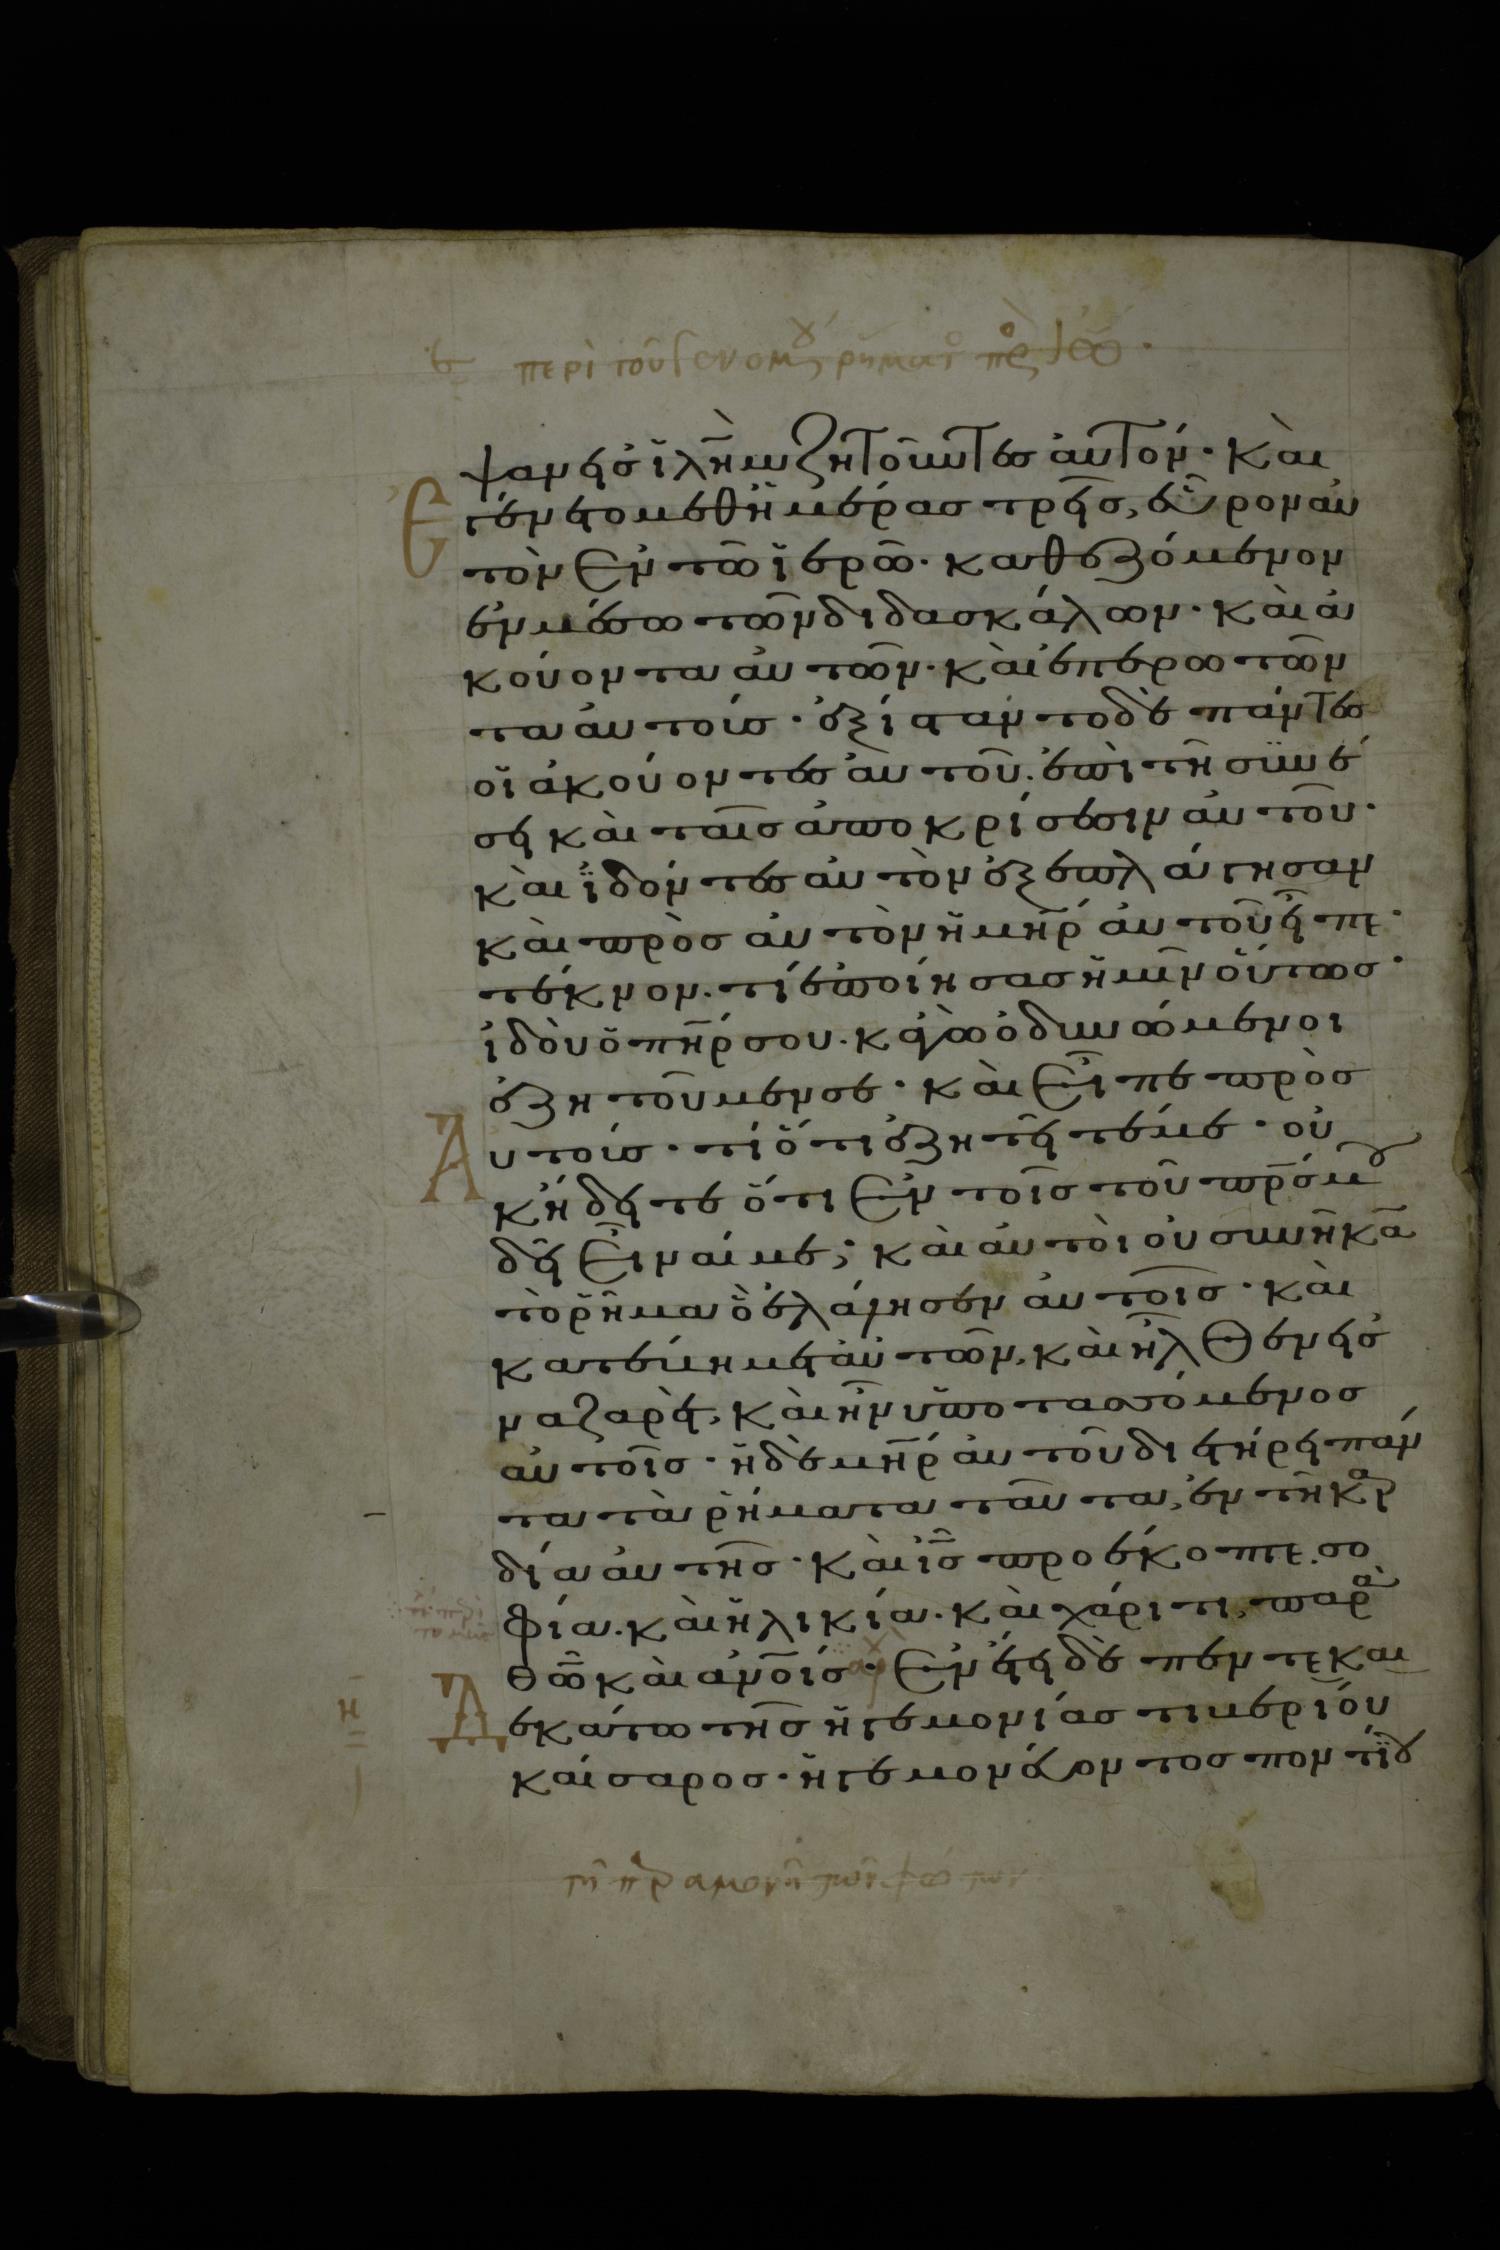 ς περὶ τοῦ γενομ ρήματ πρ ἰω
ψαν εἰς ἰλῆμ ζητοῦντες αὐτόν· καὶ
Ἐγένετο μεθ ἡμέρας τρεῖς, εὗρον αὐ
τὸν ἐν τῶ ἱερῶ· καθεζόμενον
ἐν μέσω τῶν διδασκάλων· καὶ ἀ
κούοντα αὐτῶν· καὶ ἐπερωτῶν
τα αὐτούς· ἐξίσταντο δὲ πάντες
οἱ ἀκούοντες αὐτοῦ· ἐπὶ τῆ συνέ
σει καὶ ταῖς ἀποκρίσεσιν αὐτοῦ·
καὶ ἰδόντες αὐτὸν ἐξεπλάγησαν
καὶ πρὸς αὐτὸν ἡ μῆρ αὐτοῦ εἶπε·
τέκνον· τί ἐποίησας ἡμῖν οὕτως·
ἰδοὺ ὁ πῆρ σου· κἀγὼ ὀδυνώμενοι
ἐζητοῦμεν σε· καὶ εἶπε πρὸς
Αὐτούς· τί ὅτι ἐζητεῖτέ με· οὐ
κ ἤδειτε ὅτι ἐν τοῖς τοῦ πρς μου
δεῖ εἶναί με; καὶ αὐτοὶ οὐ συνῆκα
τὸ ρῆμα ὃ ἐλάλησεν αὐτοῖς· καὶ
κατέβη μετ αὐτῶν, καὶ ἦλθεν εἰς
ναζαρὲτ, καὶ ἦν ὑποτασσόμενος
αὐτοῖς· ἡ δὲ μῆρ αὐτοῦ διετήρει πάν
τα τὰ ρήματα ταῦτα, ἐν τῆ καρ
δία αὐτῆς· καὶ ἰς προέκοπτε σο
φία· καὶ ἡλικία· καὶ χάριτι, παρὰ
θῶ καὶ ἀνοις· Ἐν ἔτει δὲ πεντεκαι
Δεκάτω τῆς ἡγεμονίας τιβερίου
η
καίσαρος· ἡγεμονεύοντος ποντίου
τῆ παραμονῆ τῶν φώτων